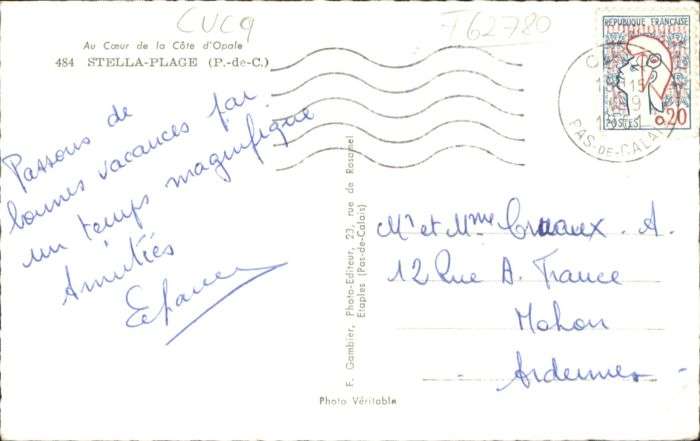 CUCQ
T62780
Au Cœur de la Côte d'Opale
484 STELLA-PLAGE (P.-de-C.)
Passons de
bonnes vacances par
un temps magnifique
Amitiés
F. Gambier, Photo-Editeur, 23, rue de Rosamel
Etaples (Pas-de-Calais)
Photo Véritable
REPUBLIQUE FRANÇAISE
POSTES 0,20
15
9
PAS-DE-CALAIS
Mr et Mme A.
12 Rue A. France
Mohon
Ardennes